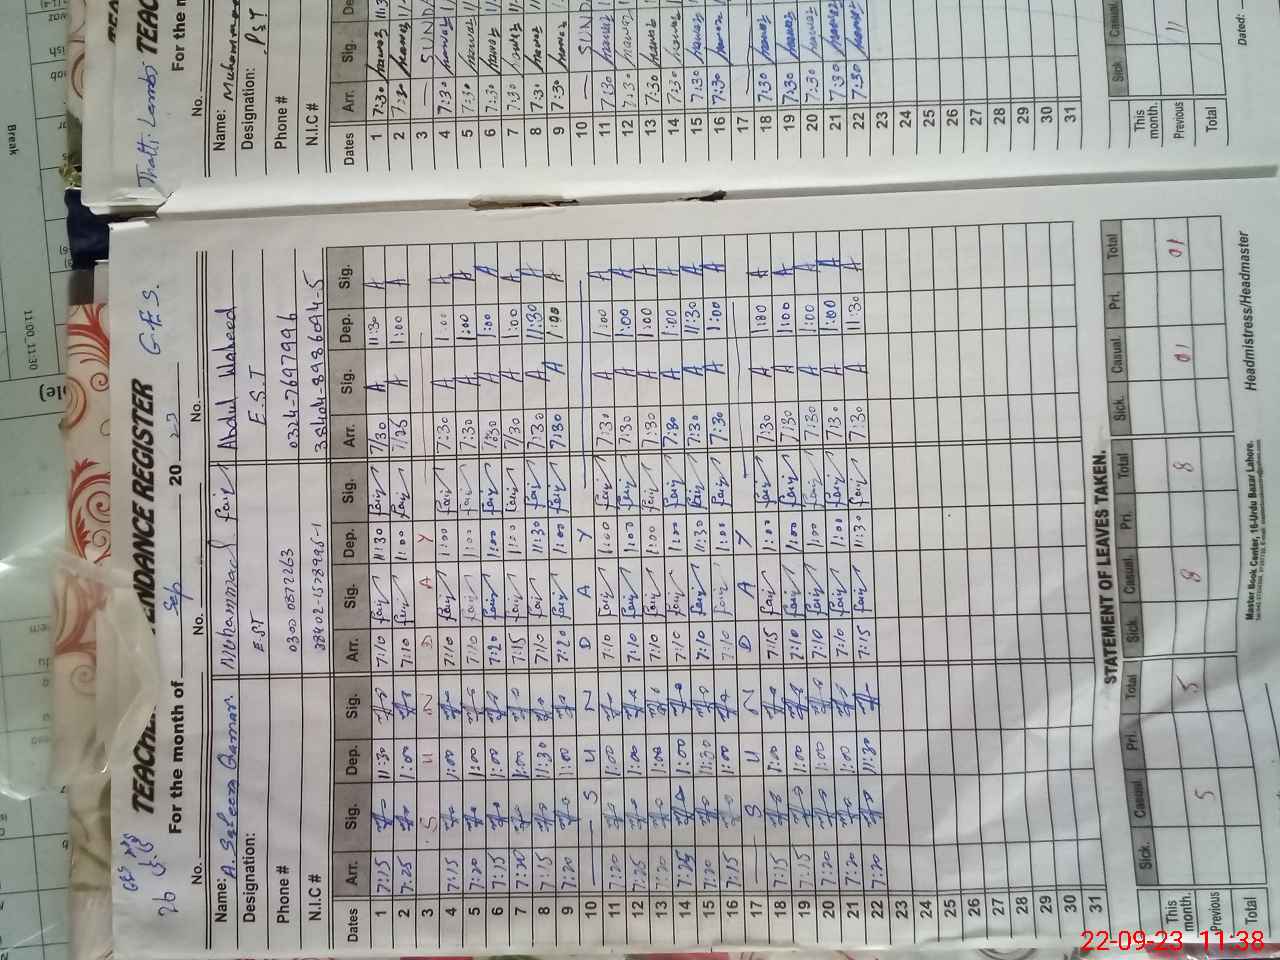 TEACHER ATTENDANCE REGISTER
For the month of Sep 20 23
G.E.S.
No. No. No.
Name: A. Saleem Qamar Muhammad Faiz Abdul Waheed
Designation: E.S.T E.S.T
Phone # 0300 0872263 0324-7697996
N.I.C # 38404-8986094-5
Dates Arr. Sig. Dep. Sig. Arr. Sig. Dep. Sig. Arr. Sig. Dep. Sig.
1 7:15 11:30 7:10 faiz 11:30 faiz 7/30 A 11:30 A
2 7:25 1:00 7:10 faiz 1:00 faiz 7/25 A 1:00 A
3 S U N D A Y
4 7:15 1:00 7:10 faiz 1:00 faiz 7:30 A 1:00 A
5 7:20 1:00 7:10 faiz 1:00 faiz 7:30 A 1:00 A
6 7:15 1:00 7:20 faiz 1:00 faiz 7:30 A 1:00 A
7 7:20 1:00 7:15 faiz 1:00 faiz 7/30 A 1:00 A
8 7:15 11:30 7:10 faiz 11:30 faiz 7:30 A 11:30 A
9 7:20 1:00 7:20 faiz 1:00 faiz 7:30 A 1:00 A
10 S U N D A Y
11 7:20 1:00 7:10 faiz 1:00 faiz 7:30 A 1:00 A
12 7:25 1:00 7:10 faiz 1:00 faiz 7:30 A 1:00 A
13 7:20 1:00 7:10 faiz 1:00 faiz 7:30 A 1:00 A
14 7:25 1:00 7:10 faiz 1:00 faiz 7:30 A 1:00 A
15 7:20 11:30 7:10 faiz 11:30 faiz 7:30 A 11:30 A
16 7:15 1:00 7:10 faiz 1:00 faiz 7:30 A 1:00 A
17 S U N D A Y
18 7:15 1:00 7:15 faiz 1:00 faiz 7:30 A 1:00 A
19 7:15 1:00 7:10 faiz 1:00 faiz 7:30 A 1:00 A
20 7:20 1:00 7:10 faiz 1:00 faiz 7:30 A 1:00 A
21 7:20 1:00 7:10 faiz 1:00 faiz 7:30 A 1:00 A
22 7:20 11:30 7:15 faiz 11:30 faiz 7:30 A 11:30 A
23
24
25
26
27
28
29
30
31
STATEMENT OF LEAVES TAKEN.
Sick. Casual. Pri. Total Sick. Casual. Pri. Total Sick. Casual. Pri. Total
This month.
Previous 5 5 8 8 01 01
Total
Master Book Center, 16-Urdu Bazar Lahore.
Headmistress/Headmaster
TEAC
For the m
No.
Name: Muhamma
Designation: PST
Phone #
N.I.C #
Dates Arr. Sig. De
1 7:30
2 7:30
3 SUND
4 7:30
5 7:30
6 7:30
7 7:30
8 7:30
9 7:30
10 SUND
11 7:30
12 7:30
13 7:30
14 7:30
15 7:30
16 7:30
17
18 7:30
19 7:30
20 7:30
21 7:30
22 7:30
23
24
25
26
27
28
29
30
31
Sick Casual.
This month.
Previous 11
Total
Dated:
Break
11:00_11:30
22-09-23 11:38